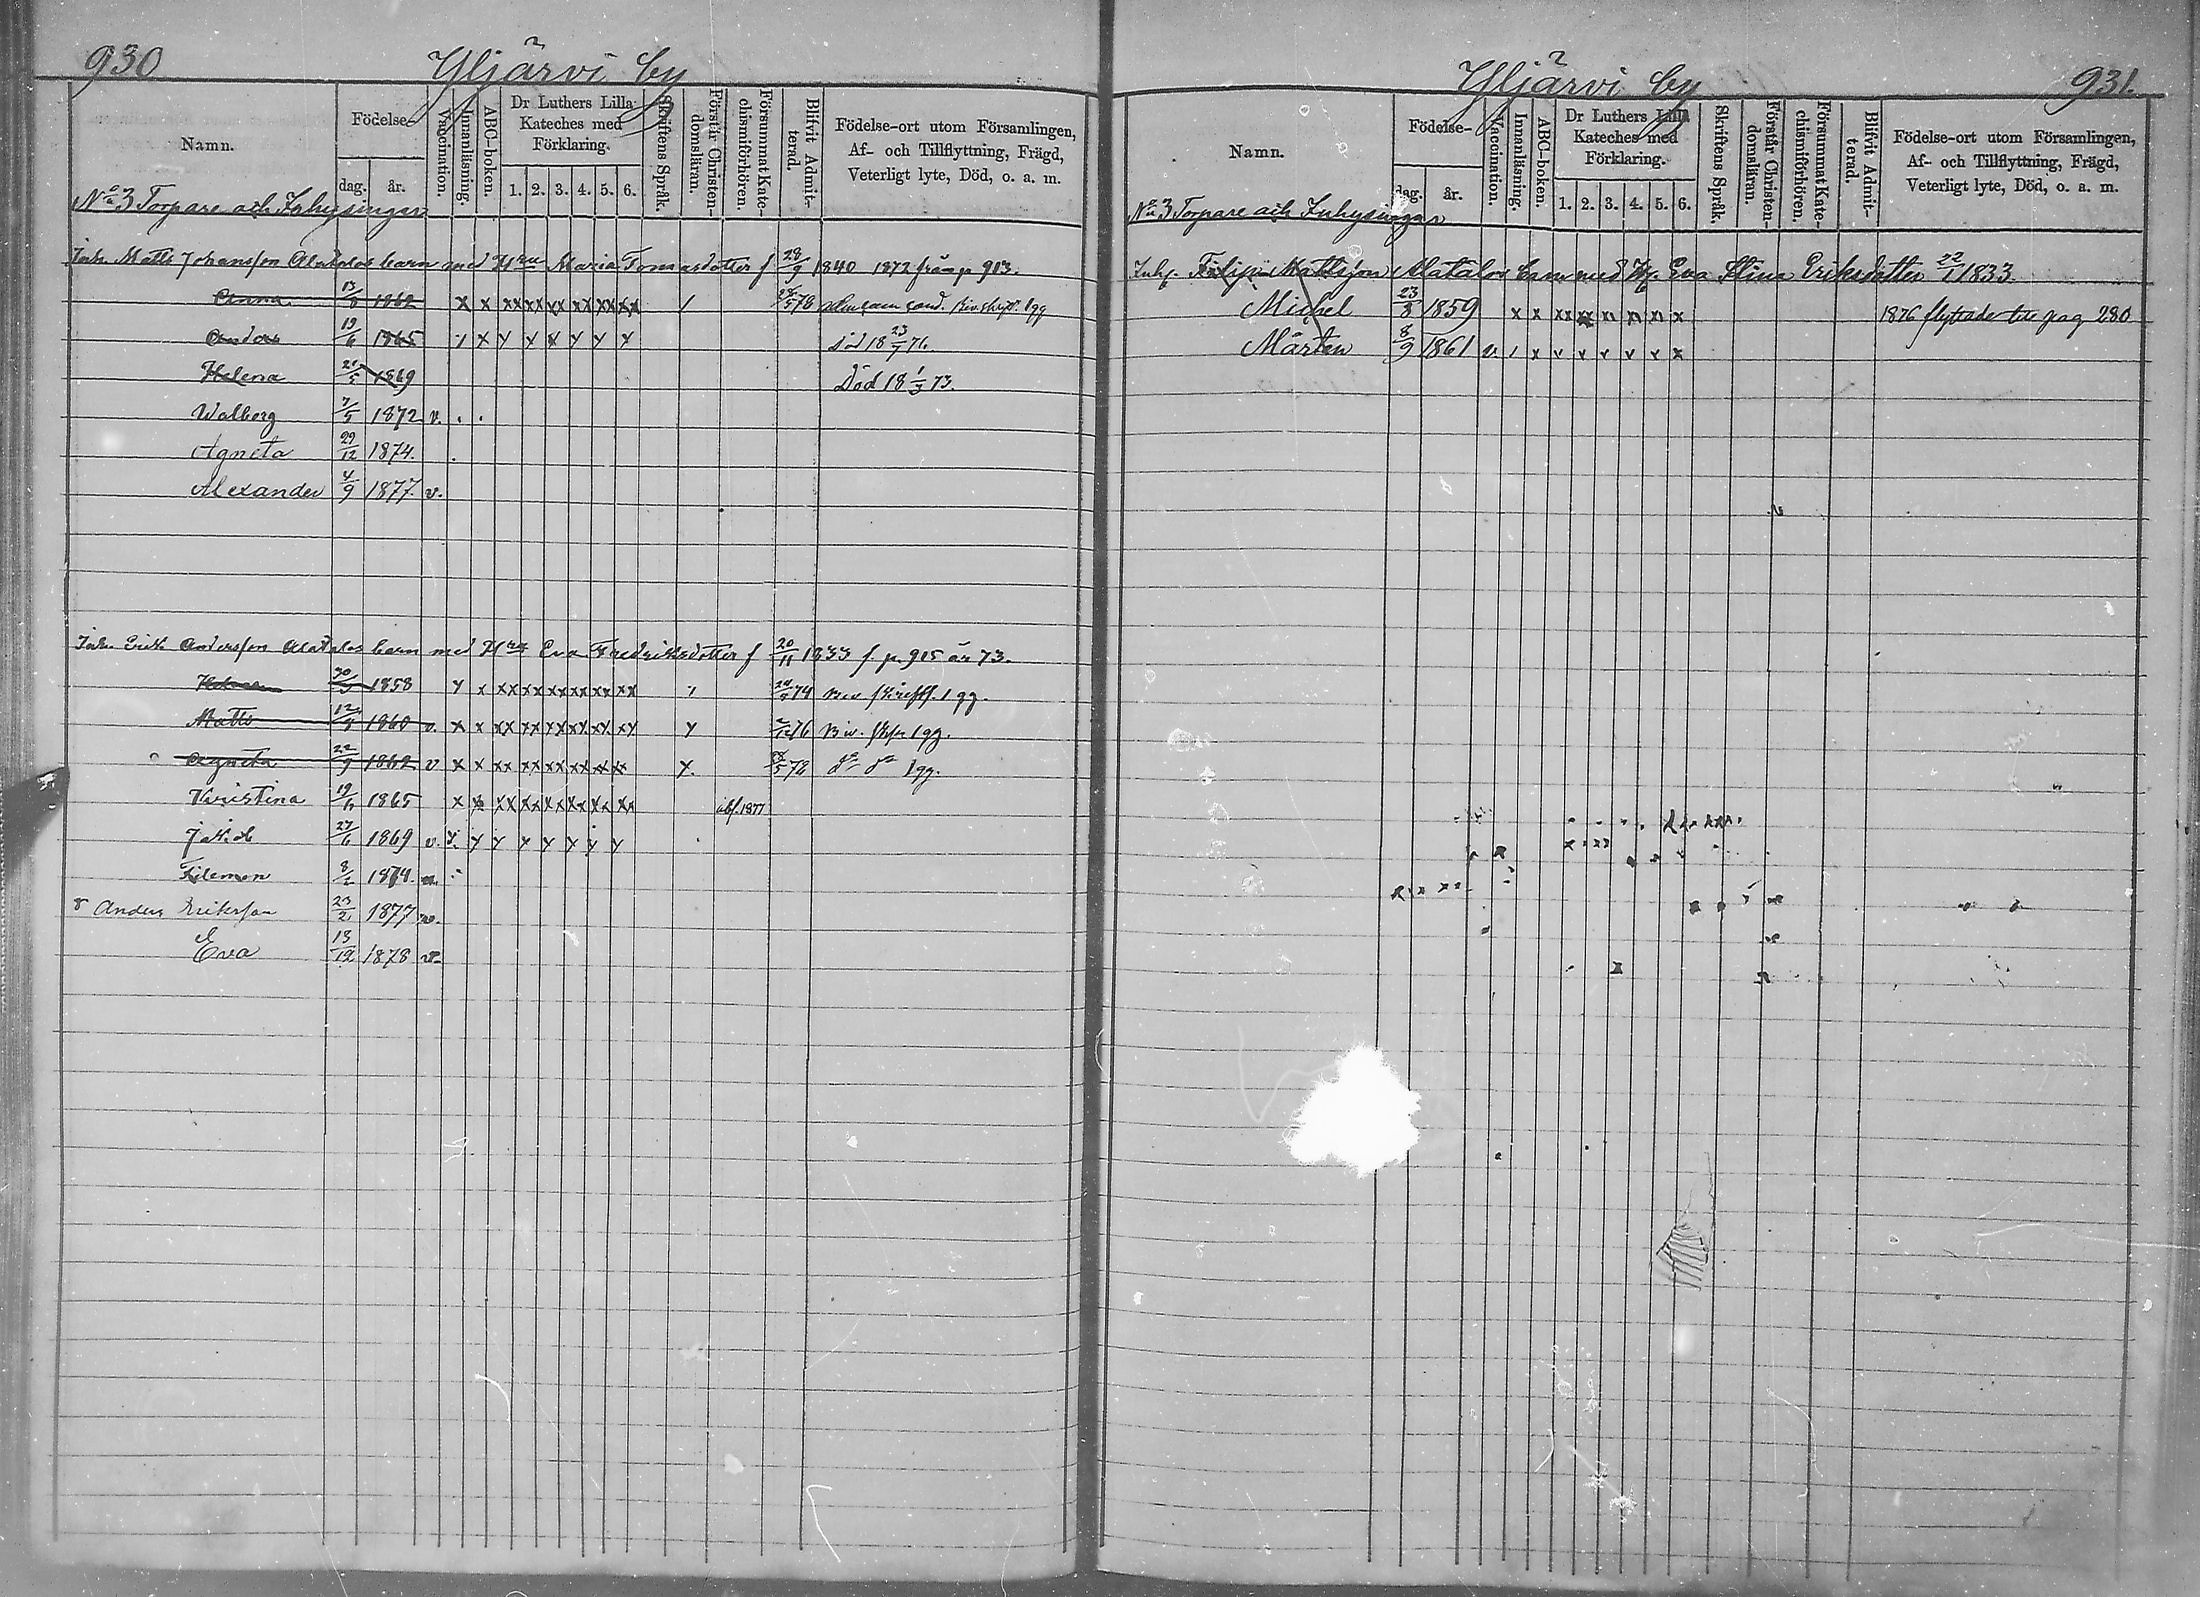 930
Yljärvi by
Namn.
Födelse-
dag.
år.
Vaccination.
Innanläsning.
ABC-boken.
Dr Luthers Lilla Kateches med Förklaring.
1. 2. 3. 4. 5. 6.
Skriftens Språk.
Förstår Christendomsläran.
Försummat Katechismiförhören.
Blifvit Admitterad.
Födelse-ort utom Församlingen, Af- och Tillflyttning, Frägd, Veterligt lyte, Död, o. a. m.
No 3 Torpare och Inhysingar
Inh. Matts Johansson Alatalos barn med Hru Maria Tomasdotter f 28/9 1840 1872 från p 913.
Anna 13/8 1862 x x xx xx xx xx xx xx 1 /5 78 1 gg
19/6 1865 x y x x y y y död 18 23/7 76.
Helena /5 1869 Död 18 1/3 73.
Walborg 7/5 1872 v.
Agneta 29/12 1874.
Alexander 4/9 1877. v.
Inh. Erik Andersson Alatalos barn med Hru Eva Fredriksdotter f 20/11 1833 f p. 915 år 73.
1858 y x xx xx xx xx xx xx 74 1 gg.
Matts 12/ 1860 v. x x xx xx xx xx xx xy y 76 1 gg.
Agneta 22/9 1862 v x x xx xx xx xx xx xx y. /5 78 do do 1 gg.
Kristina 19/ 1865 x x xx xx xx xx xx xx 1877
Jakob 27/6 1869 v. y y y y y y y
Filemon 8/2 1874.
Anders Eriksson 23/2 1877 v.
Eva 13/12 1878 v.
931.
Yljärvi by
Namn.
Födelse-
dag.
år.
Vaccination.
Innanläsning.
ABC-boken.
Dr Luthers Lilla Kateches med Förklaring.
1. 2. 3. 4. 5. 6.
Skriftens Språk.
Förstår Christendomsläran.
Försummat Katechismiförhören.
Blifvit Admitterad.
Födelse-ort utom Församlingen, Af- och Tillflyttning, Frägd, Veterligt lyte, Död, o. a. m.
No 3 Torpare och Inhysingar
Inhs. Filip Mattsson Alatalos barn med H. Eva Stina Eriksdotter 22/1 1833
Michel 23/8 1859 x x xx x x 1876 flyttade till pag 280
Mårten 8/9 1861 v. x v v v v v x